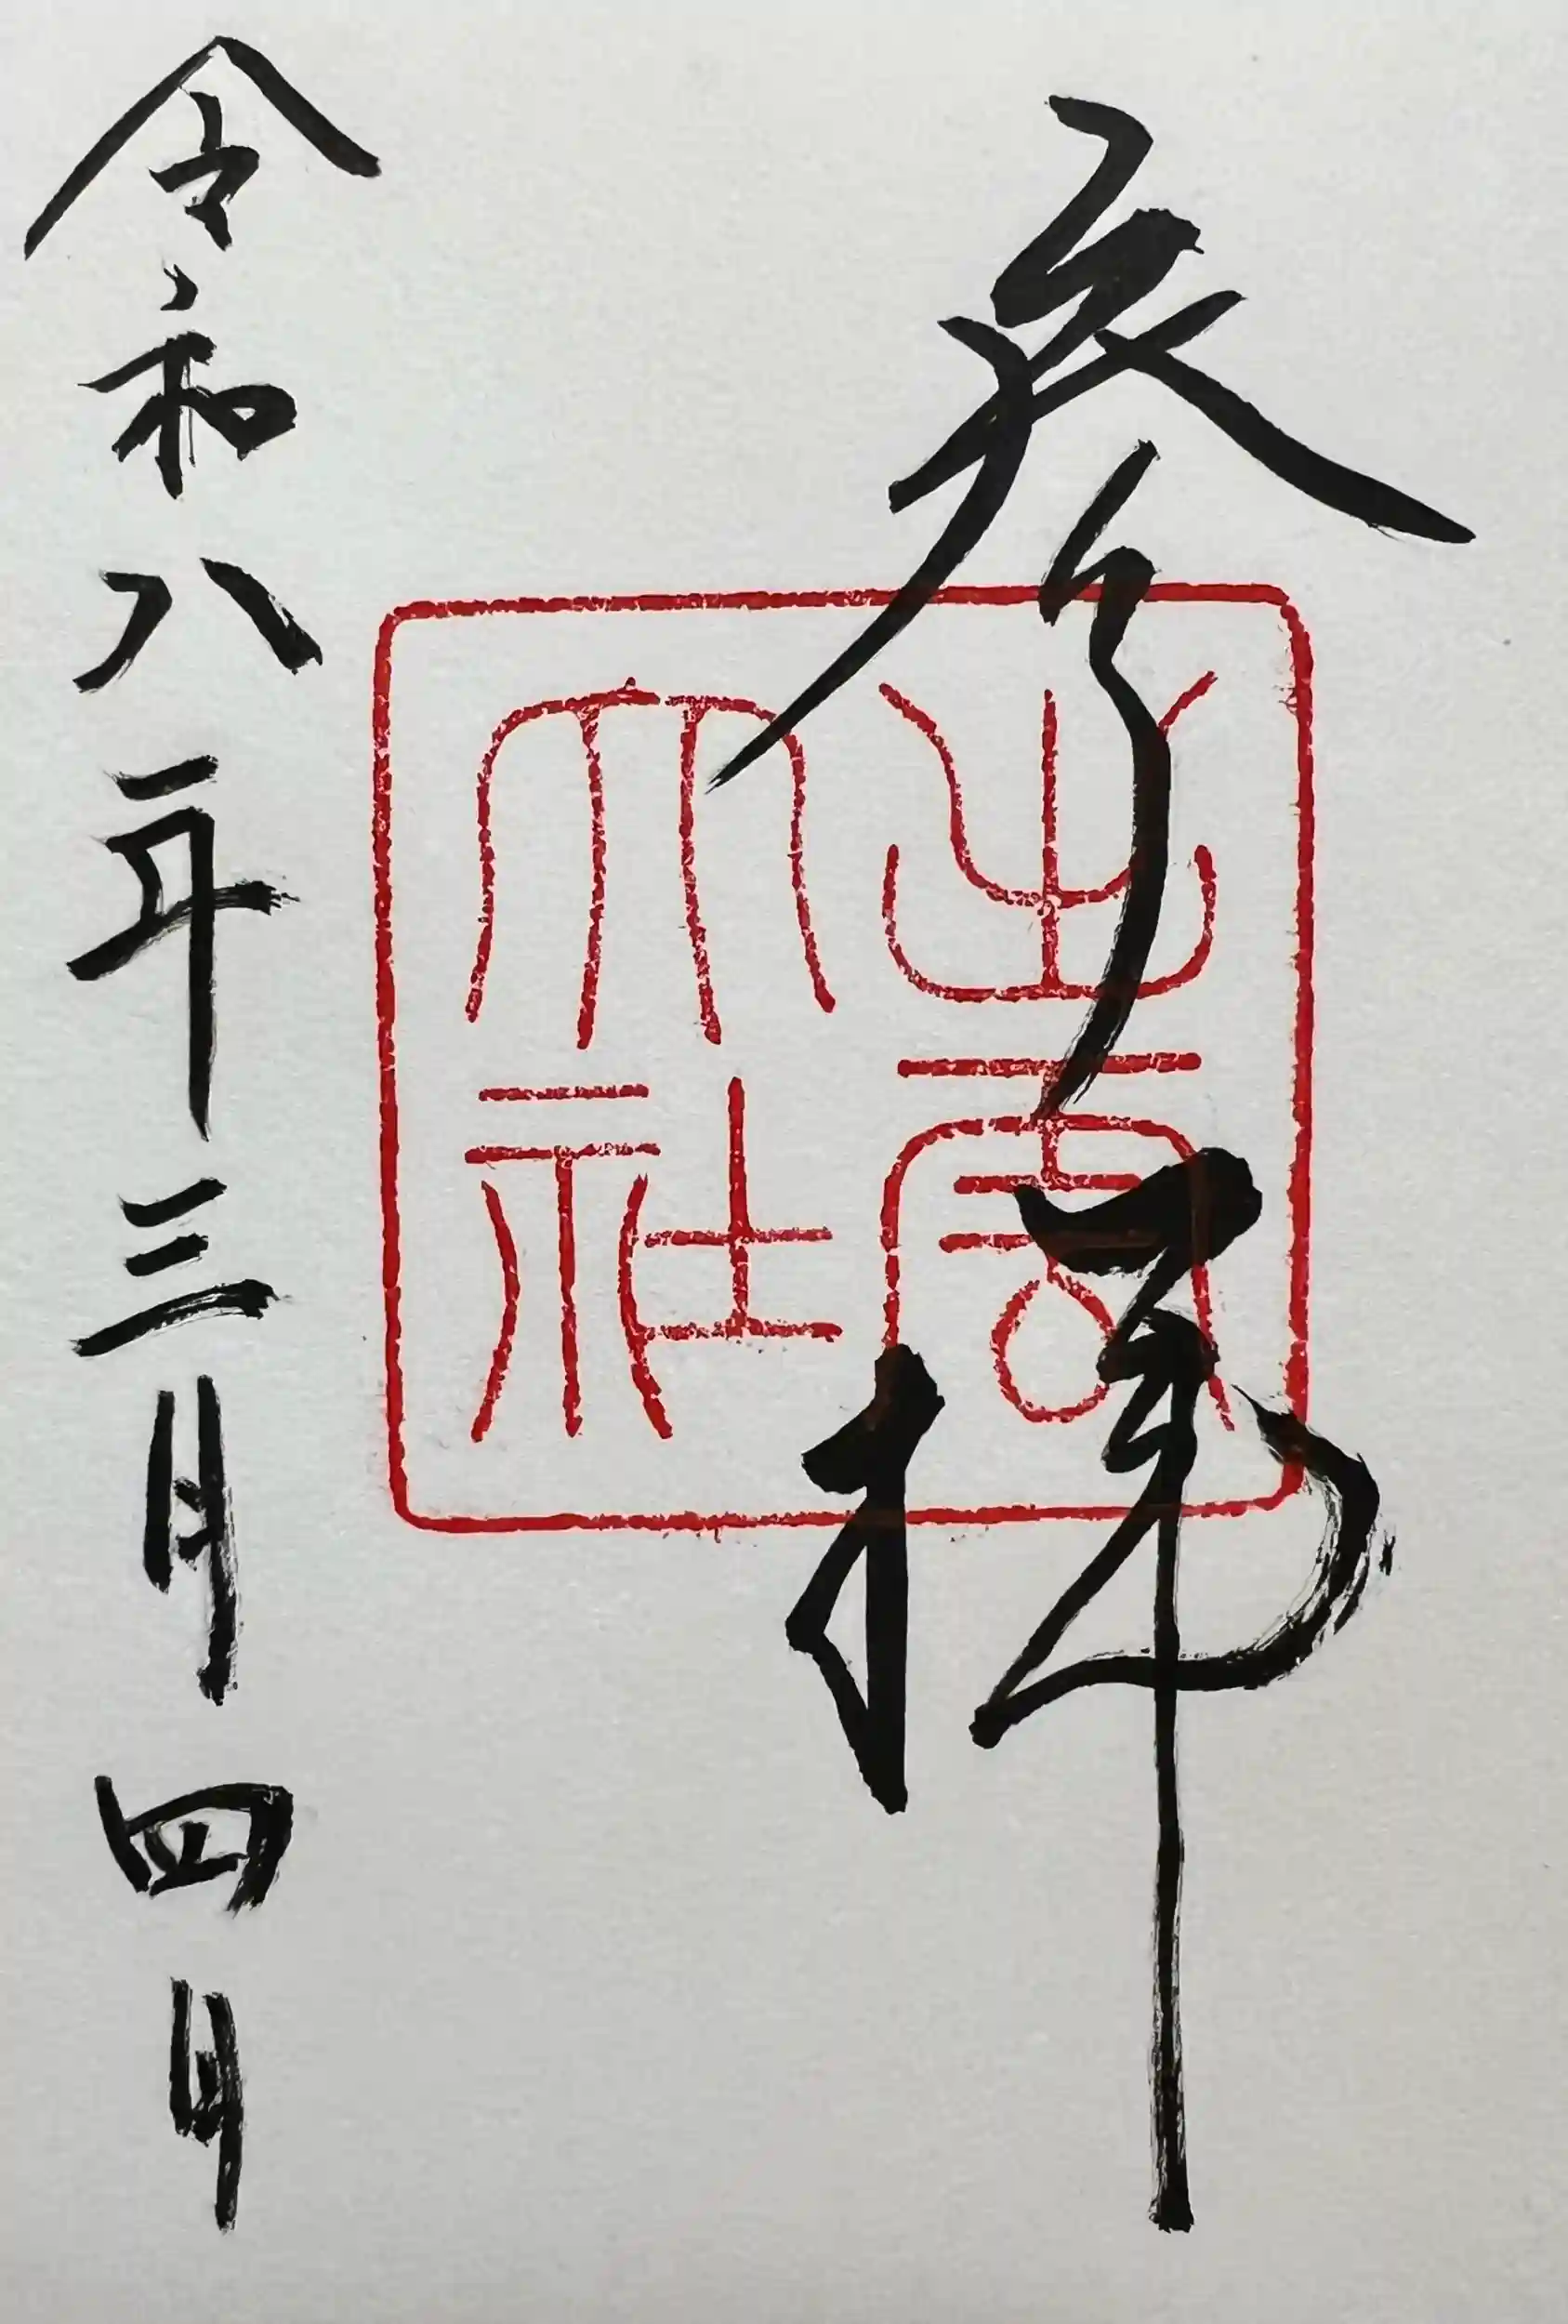 参拝
出雲大社
令和八年三月四日